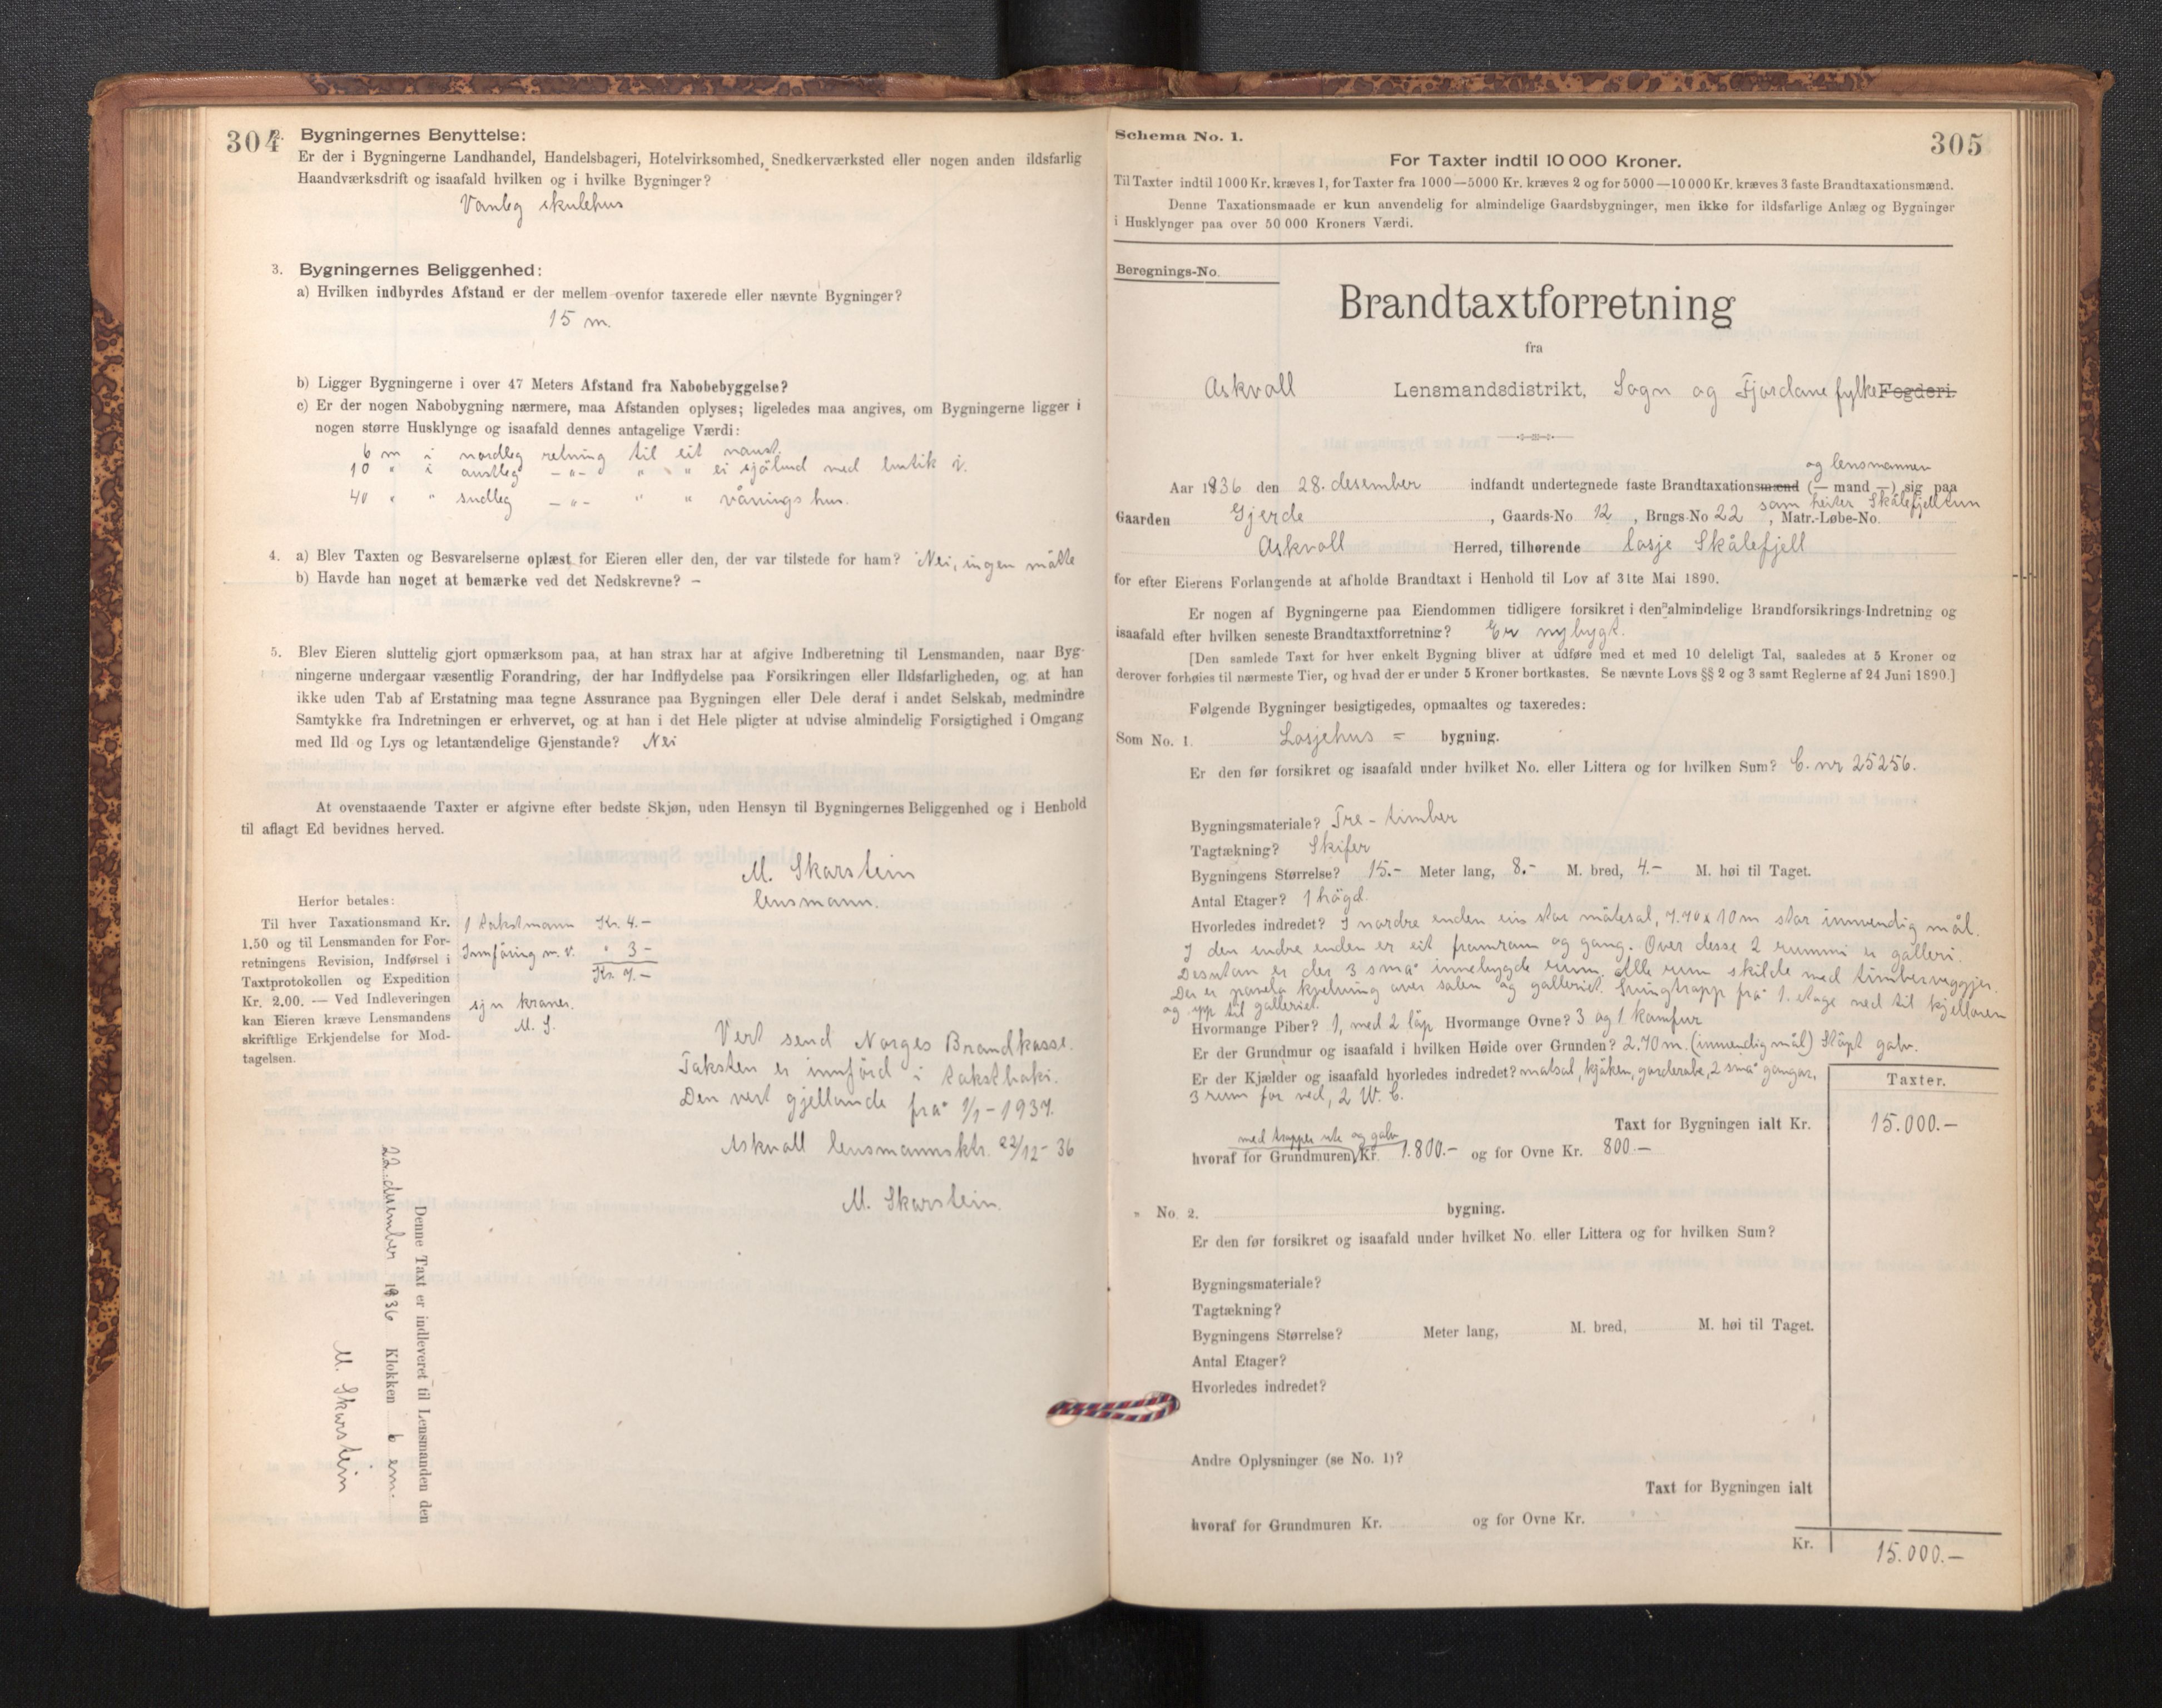 304
2. Bygningernes Benyttelse:
Er der i Bygningerne Landhandel, Handelsbageri, Hotelvirksomhed, Snedkerværksted eller nogen anden ildsfarlig
Haandværksdrift og isaafald hvilken og i hvilke Bygninger?
Vanleg skulehus
3. Bygningernes Beliggenhed:
a) Hvilken indbyrdes Afstand er der mellem ovenfor taxerede eller nævnte Bygninger?
15 m.
b) Ligger Bygningerne i over 47 Meters Afstand fra Nabobebyggelse?
c) Er der nogen Nabobygning nærmere, maa Afstanden oplyses; ligeledes maa angives, om Bygningerne ligger i
nogen større Husklynge og isaafald dennes antagelige Værdi:
6 m i nordleg retning til eit naust.
10 " i austleg -"- " " ei sjåbud med butik i.
40 " " sudleg -"- " " våningshus.
4. a) Blev Taxten og Besvarelserne oplæst for Eieren eller den, der var tilstede for ham? Nei, ingen måtte
b) Havde han noget at bemærke ved det Nedskrevne? –
5. Blev Eieren sluttelig gjort opmærksom paa, at han strax har at afgive Indberetning til Lensmanden, naar Byg-
ningerne undergaar væsentlig Forandring, der har Indflydelse paa Forsikringen eller Ildsfarligheden, og at han
ikke uden Tab af Erstatning maa tegne Assurance paa Bygningen eller Dele deraf i andet Selskab, medmindre
Samtykke fra Indretningen er erhvervet, og at han i det Hele pligter at udvise almindelig Forsigtighed i Omgang
med Ild og Lys og letantændelige Gjenstande? Nei
At ovenstaaende Taxter er afgivne efter bedste Skjøn, uden Hensyn til Bygningernes Beliggenhed og i Henhold
til aflagt Ed bevidnes herved.
M. Skarstein
lensmann.
Herfor betales:
Til hver Taxationsmand Kr.
1.50 og til Lensmanden for For-
retningens Revision, Indførsel i
Taxtprotokollen og Expedition
Kr. 2.00. — Ved Indleveringen
kan Eieren kræve Lensmandens
skriftlige Erkjendelse for Mod-
tagelsen.
1 takstmann Kr. 4.-
Innføring m.v. " 3-
Kr. 7.-
sju kroner.
M. S.
Vert send Norges Brandkasse.
Taksten er innförd i takstboki.
Den vert gjellande frå 1/1-1937.
Askvoll lensmannsktr. 22/12-36
M. Skarstein.
Denne Taxt er indleveret til Lensmanden den
22. desember 1936 Klokken 6 em.
M. Skarstein
Schema No. 1.
305
For Taxter indtil 10 000 Kroner.
Til Taxter indtil 1000 Kr. kræves 1, for Taxter fra 1000—5000 Kr. kræves 2 og for 5000—10 000 Kr. kræves 3 faste Brandtaxationsmænd.
Denne Taxationsmaade er kun anvendelig for almindelige Gaardsbygninger, men ikke for ildsfarlige Anlæg og Bygninger
i Husklynger paa over 50 000 Kroners Værdi.
Beregnings-No.
Brandtaxtforretning
fra
Askvoll Lensmandsdistrikt, Sogn og Fjordane fylke Fogderi.
og lensmannen
Aar 1936 den 28. desember indfandt undertegnede faste Brandtaxationsmænd (— mand —) sig paa
som heiter Skålefjell
Gaarden Gjerde, Gaards-No 12, Brugs-No 22, Matr.-Løbe-No.
Askvoll Herred, tilhørende losje Skålefjell
for efter Eierens Forlangende at afholde Brandtaxt i Henhold til Lov af 31te Mai 1890.
Er nogen af Bygningerne paa Eiendommen tidligere forsikret i den almindelige Brandforsikrings-Indretning og
isaafald efter hvilken seneste Brandtaxtforretning? Er nybygt.
[Den samlede Taxt for hver enkelt Bygning bliver at udføre med et med 10 deleligt Tal, saaledes at 5 Kroner og
derover forhøies til nærmeste Tier, og hvad der er under 5 Kroner bortkastes. Se nævnte Lovs §§ 2 og 3 samt Reglerne af 24 Juni 1890.]
Følgende Bygninger besigtigedes, opmaaltes og taxeredes:
Som No. 1. Losjehus = bygning.
Er den før forsikret og isaafald under hvilket No. eller Littera og for hvilken Sum? C. nr 25256.
Bygningsmateriale? Tre-timber
Tagtækning? Skifer
Bygningens Størrelse? 15.- Meter lang, 8.- M. bred, 4.- M. høi til Taget.
Antal Etager? 1 högd.
Hvorledes indredet? I nordre enden ein stor mötesal, 7.70 x 10 m stor innvendig mål.
I den andre enden er eit framrum og gang. Over desse 2 rummi er galleri.
Desutan er der 3 små innebygde rum. Alle rum skilde med timberveggjer.
Der er panela kvelving over salen og galleriet. Svingtrapp frå 1. etage ned til kjellaren
og upp til galleriet.
Hvormange Piber? 1, med 2 löp Hvormange Ovne? 3 og 1 komfur
Er der Grundmur og isaafald i hvilken Høide over Grunden? 2.70 m. (innvendig mål) Stöpt golv.
Er der Kjælder og isaafald hvorledes indredet? matsal, kjöken, garderobe, 2 små gangar,
3 rum for ved, 2 W. C.
Taxter.
Taxt for Bygningen ialt Kr. 15.000.—
med trapper ute og golv
hvoraf for Grundmuren Kr. 1.800.- og for Ovne Kr. 800.—
" No. 2. bygning.
Er den før forsikret og isaafald under hvilket No. eller Littera og for hvilken Sum?
Bygningsmateriale?
Tagtækning?
Bygningens Størrelse? Meter lang, M. bred, M. høi til Taget.
Antal Etager?
Hvorledes indredet?
Andre Oplysninger (se No. 1)?
Taxt for Bygningen ialt
hvoraf for Grundmuren Kr. og for Ovne Kr.
Kr. 15.000.—